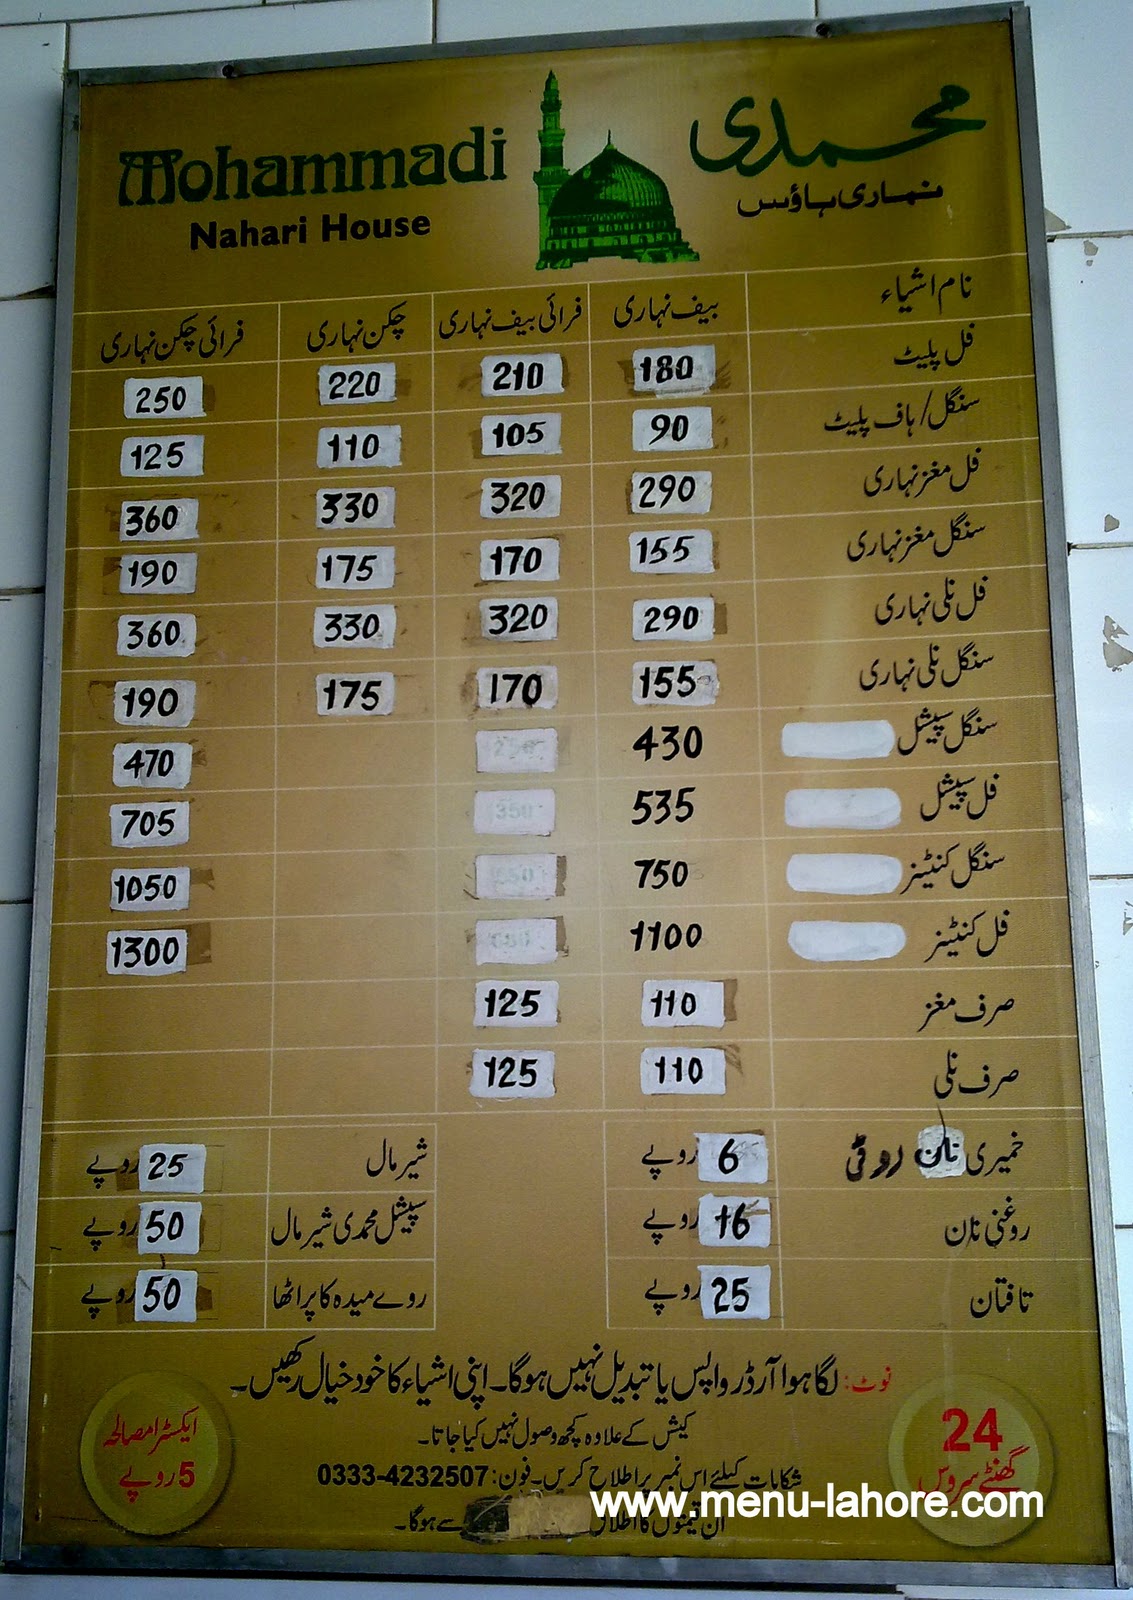 Mohammadi
Nahari House
محمدی
نہاری ہاؤس
نام اشیاء بیف نہاری فرائی بیف نہاری چکن نہاری فرائی چکن نہاری
فل پلیٹ 180 210 220 250
سنگل/ہاف پلیٹ 90 105 110 125
فل مغز نہاری 290 320 330 360
سنگل مغز نہاری 155 170 175 190
فل نلی نہاری 290 320 330 360
سنگل نلی نہاری 155 170 175 190
سنگل سپیشل 430 470
فل سپیشل 535 705
سنگل کنٹینر 750 1050
فل کنٹینر 1100 1300
صرف مغز 110 125
صرف نلی 110 125
خمیری نان روٹی 6 روپے شیرمال 25 روپے
روغنی نان 16 روپے سپیشل محمدی شیرمال 50 روپے
تافتان 25 روپے روے میدہ کا پراٹھا 50 روپے
نوٹ: لگا ہوا آرڈر واپس یا تبدیل نہیں ہوگا۔ اپنی اشیاء کا خود خیال رکھیں۔
کیش کے علاوہ کچھ وصول نہیں کیا جاتا۔
شکایات کیلئے اس نمبر پر اطلاع کریں۔ فون: 0333-4232507
ان قیمتوں کا اطلاق سے ہوگا۔
24
گھنٹے سروس
ایکسٹرا مصالحہ
5 روپے
www.menu-lahore.com